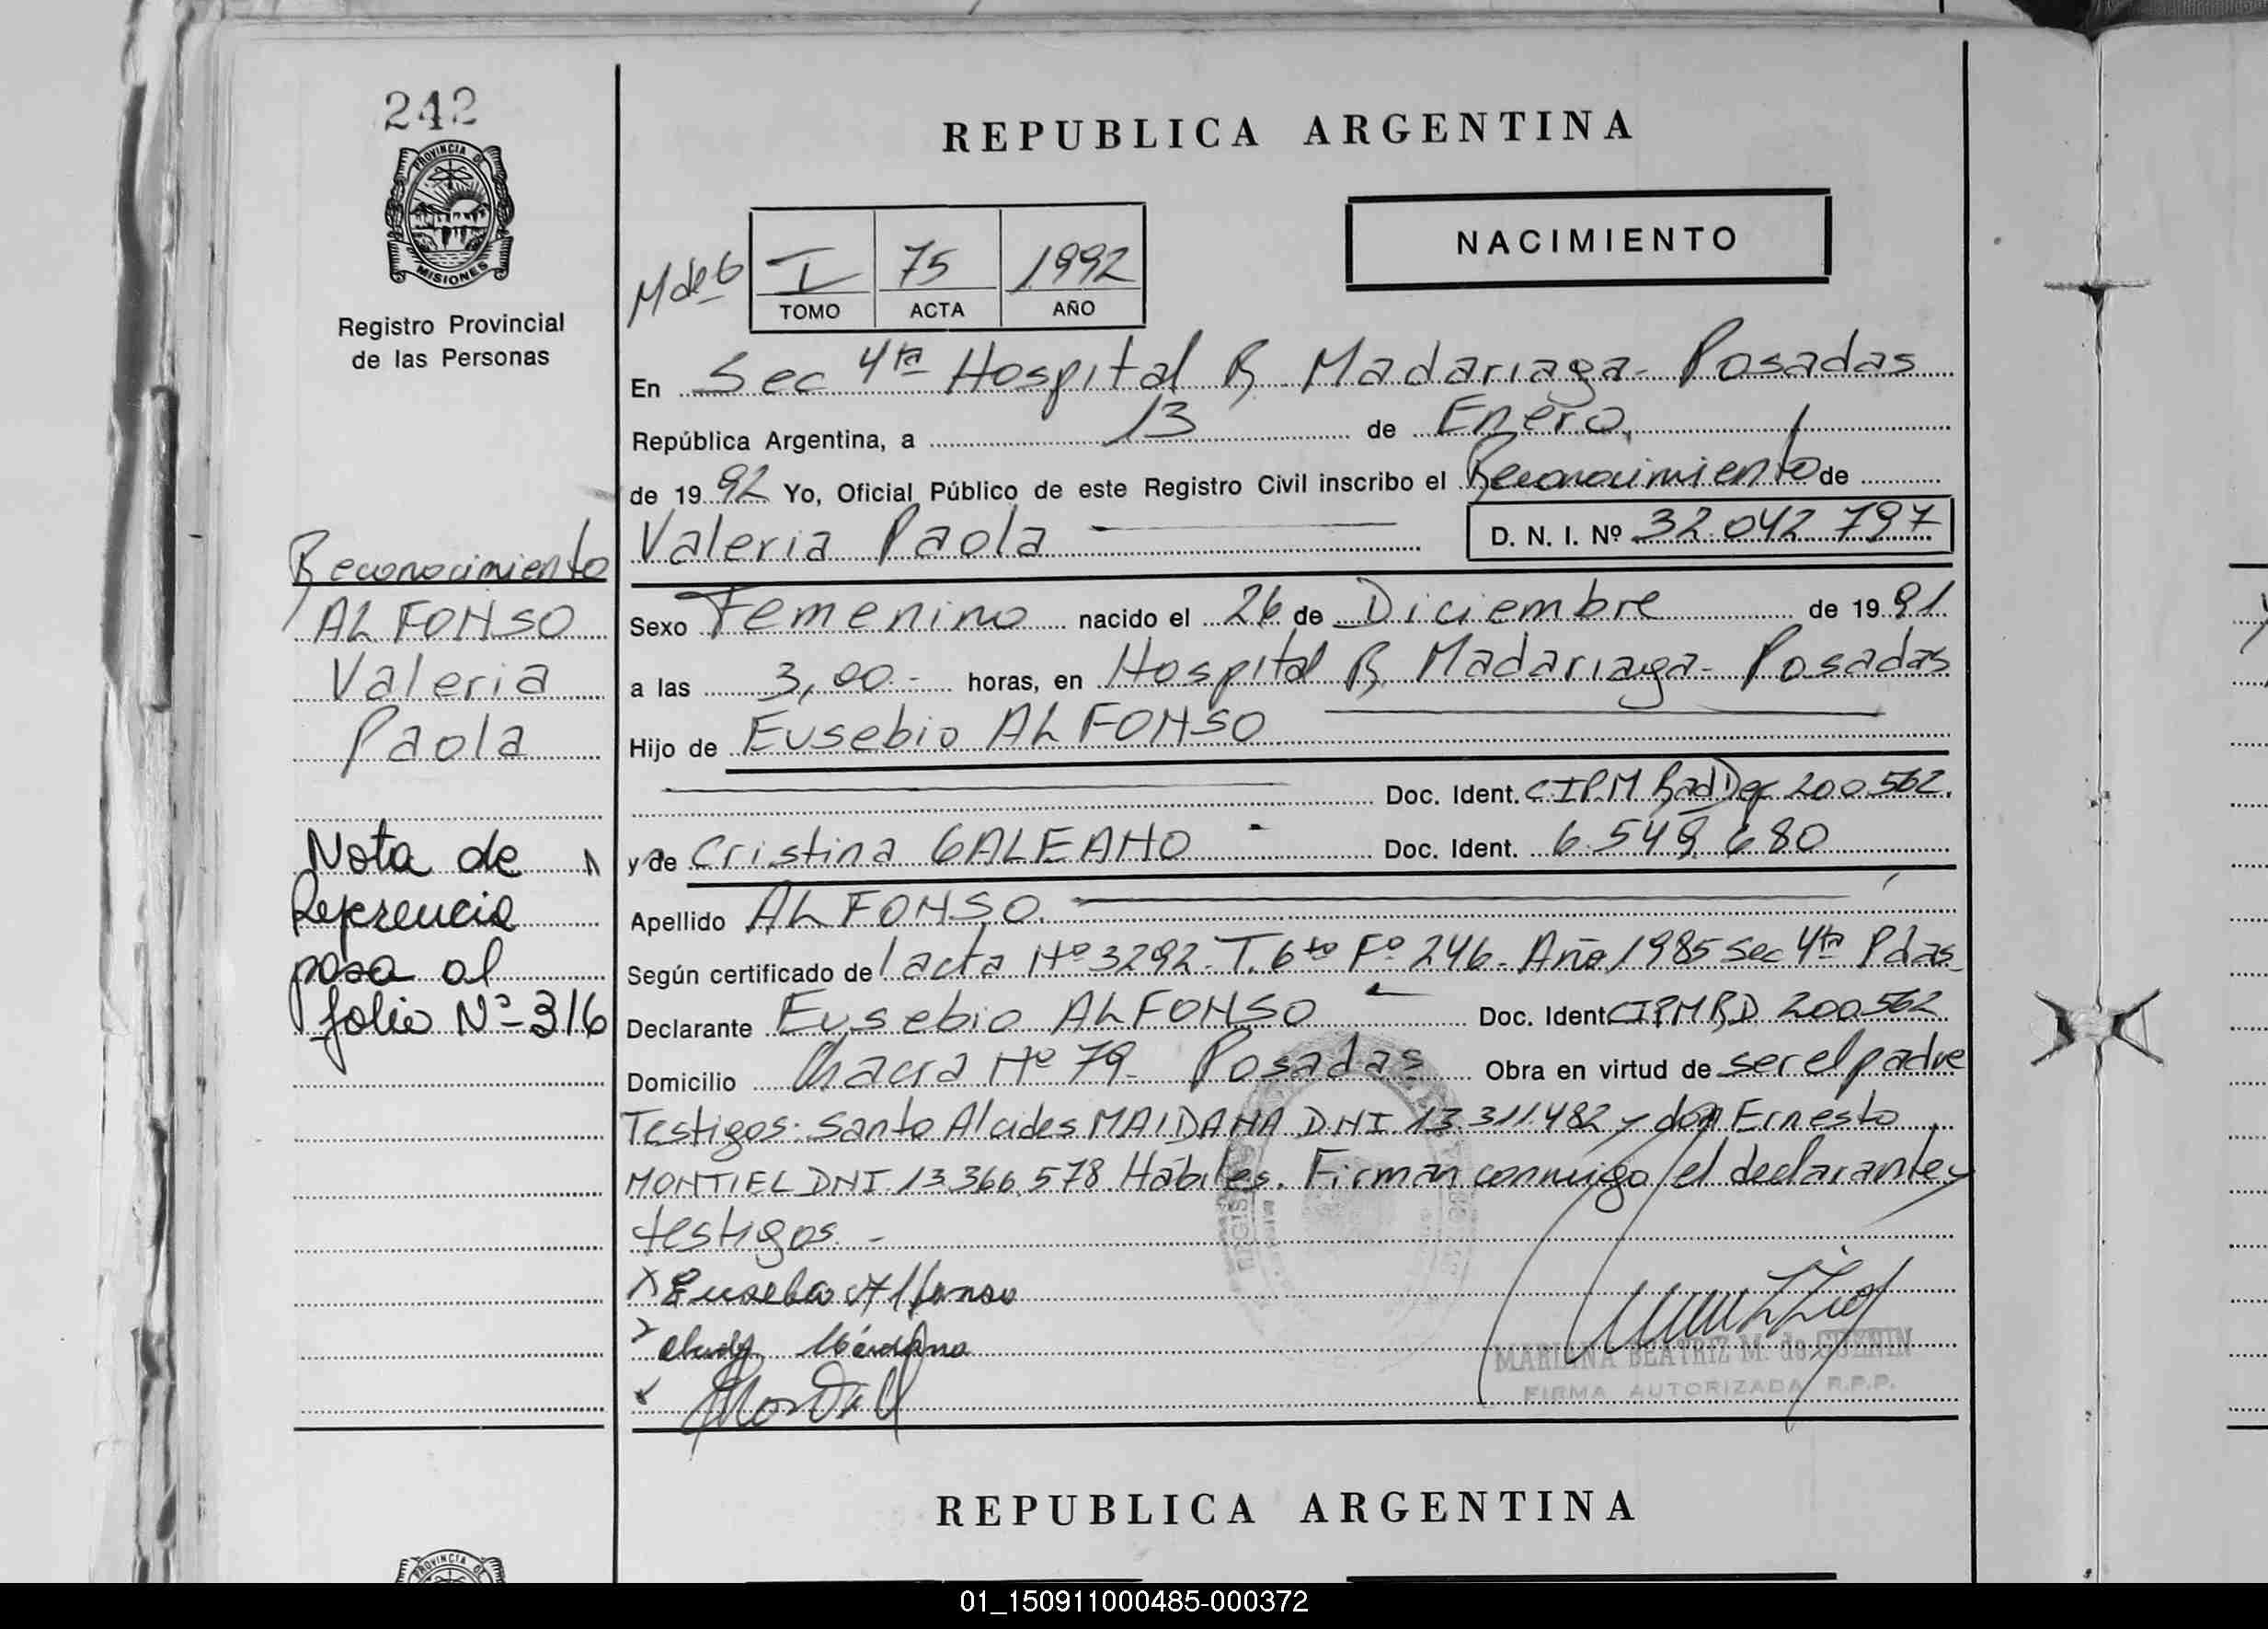 242
PROVINCIA DE
MISIONES
Registro Provincial
de las Personas
Reconocimiento
ALFONSO
Valeria
Paola
Nota de
Referencia
pasa al
folio Nº 316
REPUBLICA ARGENTINA
NACIMIENTO
M de G
I 75 1992
TOMO ACTA AÑO
En Sec 4ta Hospital R. Madariaga - Posadas
República Argentina, a 13 de Enero
de 1992 Yo, Oficial Público de este Registro Civil inscribo el Reconocimiento de
Valeria Paola D. N. I. Nº 32.042.797
Sexo Femenino nacido el 26 de Diciembre de 1991
a las 3,00 - horas, en Hospital R. Madariaga - Posadas
Hijo de Eusebio ALFONSO
Doc. Ident. CIPM Rad Def 200.562.
y de Cristina GALEANO - Doc. Ident. 6.549.680
Apellido ALFONSO
Según certificado de acta Nº 3292 - T. 6to Fº 246 - Año 1985 Sec 4ta Pdas
Declarante Eusebio ALFONSO Doc. Ident. CIPM RD 200.562
Domicilio Chacra Nº 79 - Posadas Obra en virtud de ser el padre
Testigos: Santo Alcides MAIDANA DNI 13.311.482 y don Ernesto
MONTIEL DNI 13.366.578 Hábiles. Firman conmigo el declarante y
testigos. -
x Eusebio Alfonso
MARIANA BEATRIZ M. de GUENIN
FIRMA AUTORIZADA R.P.P.
REPUBLICA ARGENTINA
PROVINCIA DE
01_150911000485-000372